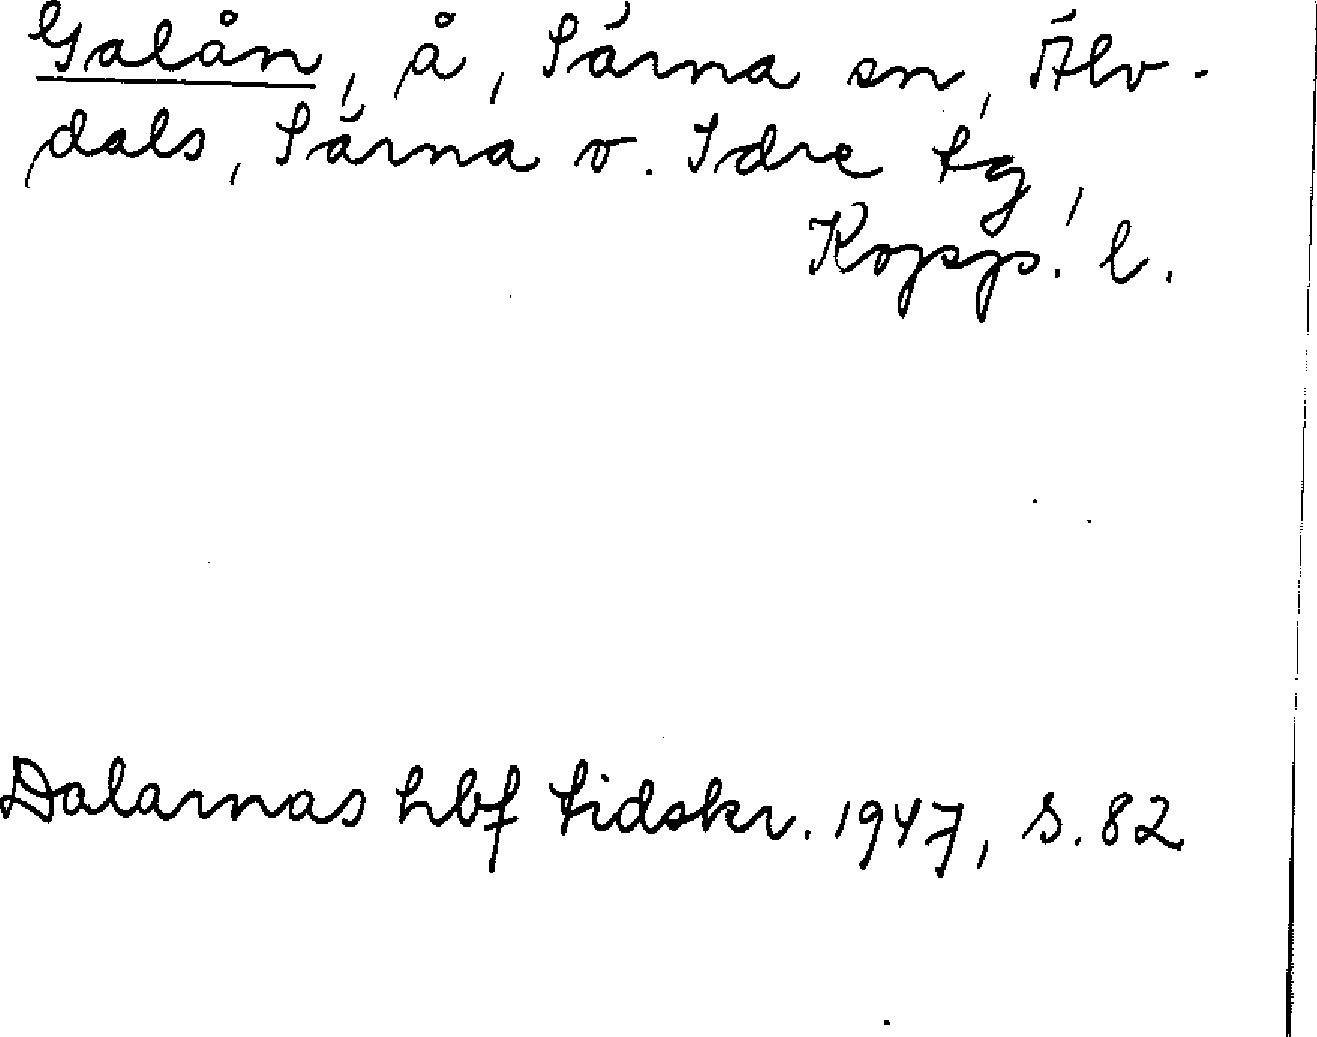 Galån, å, Särna sn, Älv-
dals, Särna o. Idre tg,
Kopp. l.
Dalarnas hbf tidskr. 1947, s. 82